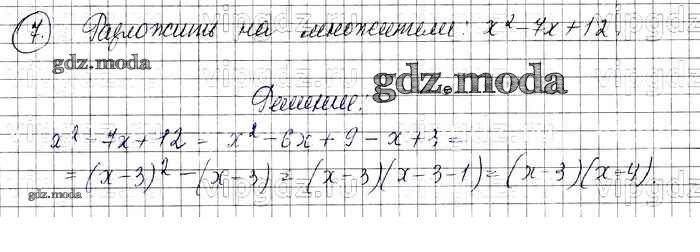 7. Разложить на множители: x² - 7x + 12.
gdz.moda
Решение: gdz.moda
x² - 7x + 12 = x² - 6x + 9 - x + 3 =
= (x-3)² - (x-3) = (x-3)(x-3-1) = (x-3)(x-4).
gdz.moda